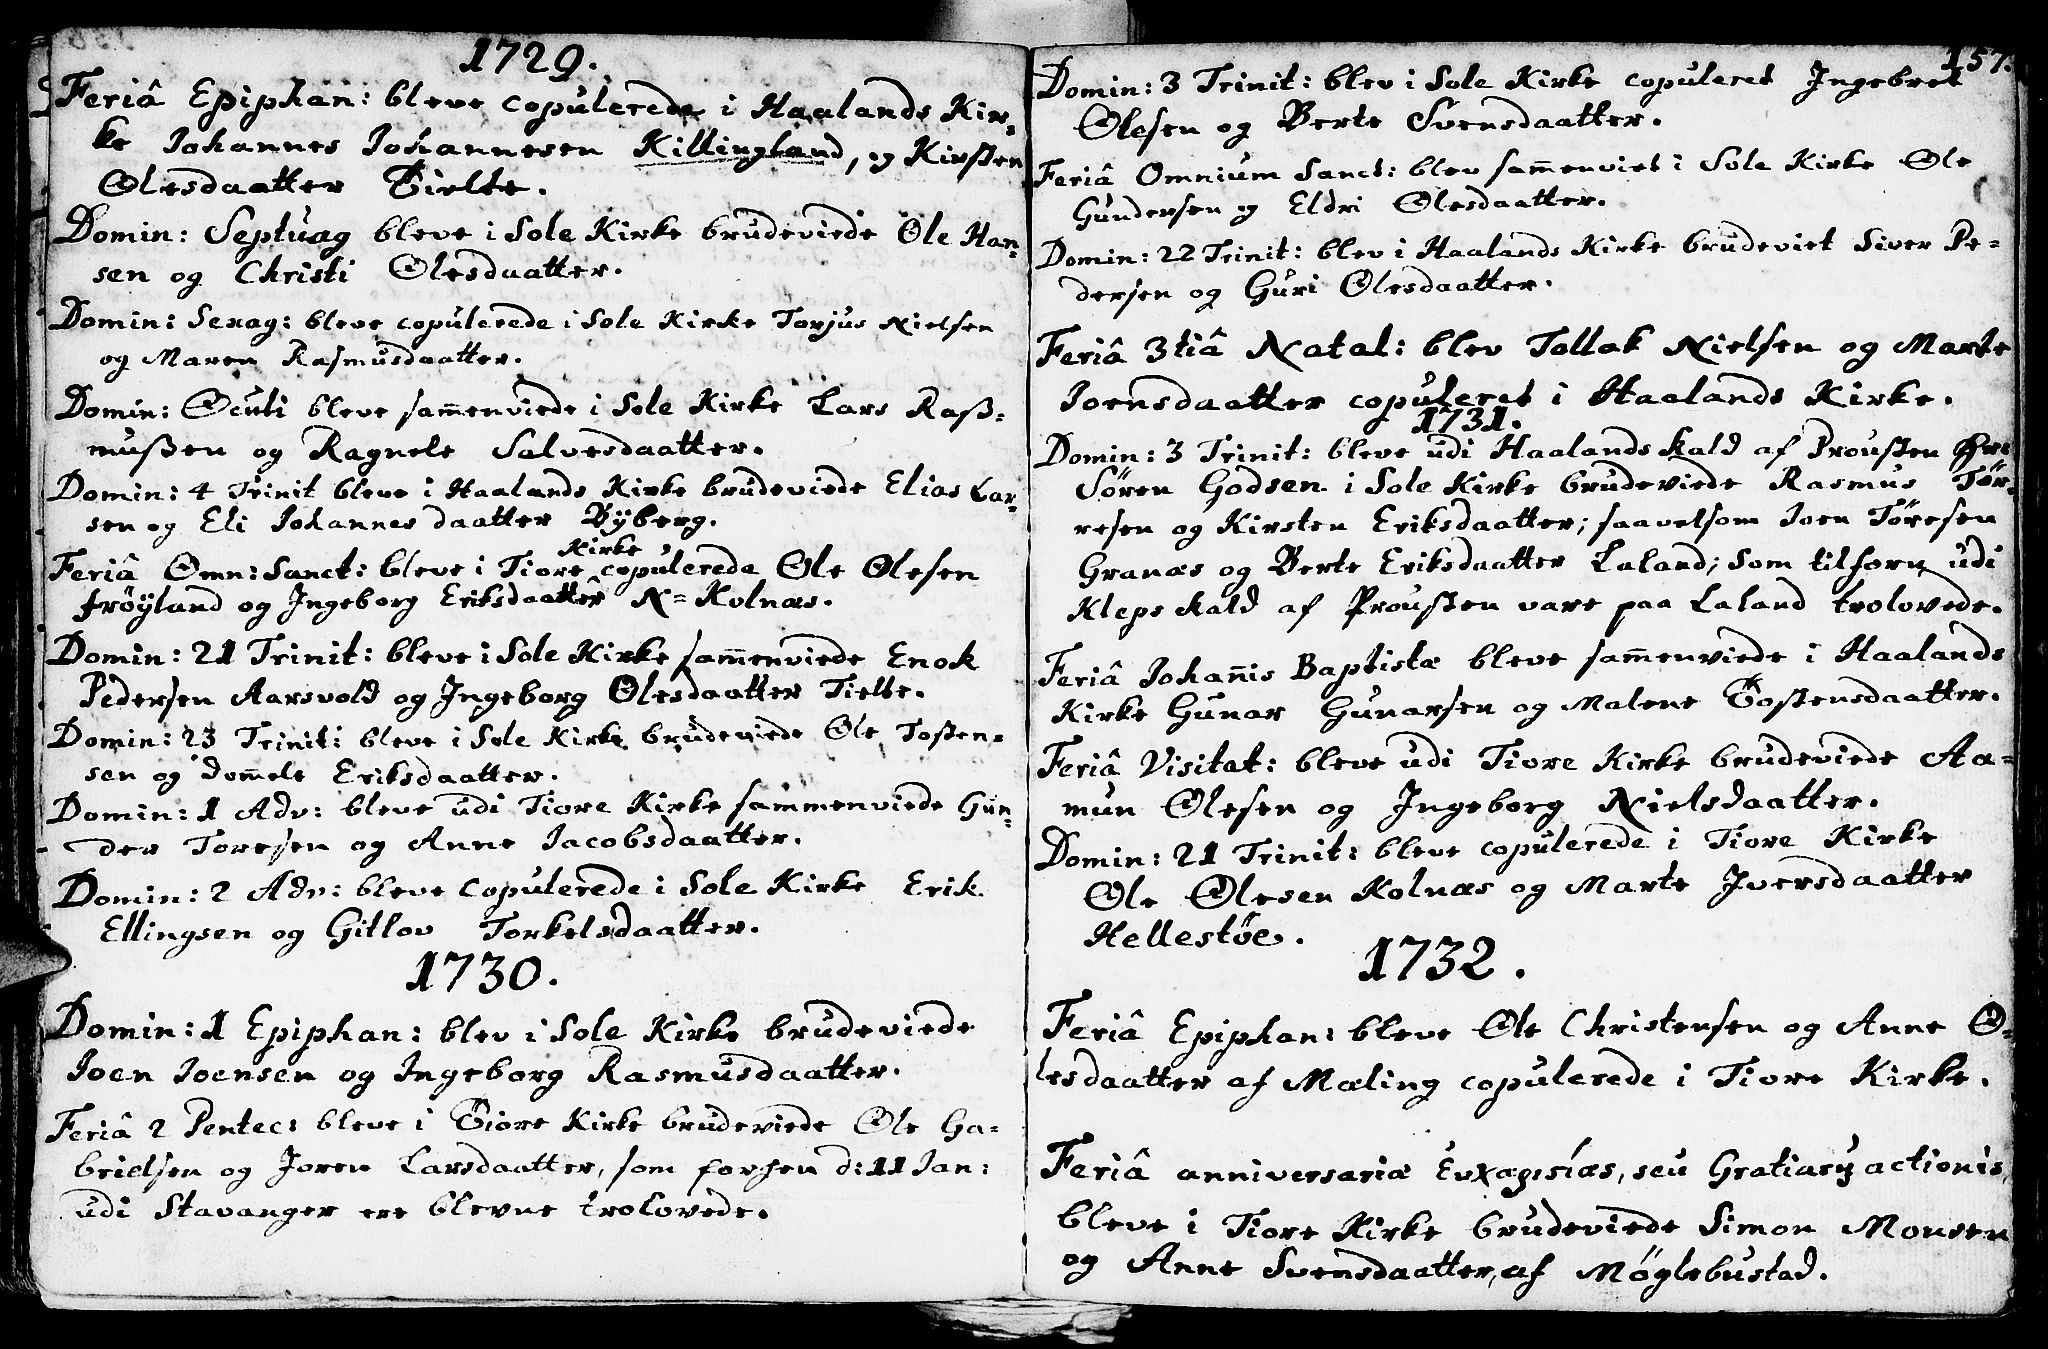 1729.
Feriâ Epiphan: bleve copulerede i Haalands Kir-
ke Johannes Johannesen Killingland, og Kirsten
Olesdaatter Tielte.
Domin: Septuag bleve i Sole Kirke brudeviede Ole Han-
sen og Christi Olesdaatter.
Domin: Sexag: bleve copulerede i Sole Kirke Torjus Nielsen
og Maren Rasmusdaatter.
Domin: Oculi bleve sam̄enviede i Sole Kirke Lars Raß-
mußen og Ragnele Salvesdaatter.
Domin: 4 Trinit bleve i Haalands Kirke brudeviede Elias Lar-
sen og Eli Johannesdaatter Bÿberg.
Kirke
Feriâ Omn: Sanct: bleve i Tiore copulerede Ole Olesen
frøÿland og Ingeborg Eriksdaatter N= Kolnæs.
Domin: 21 Trinit: bleve i Sole Kirke sam̄enviede Enok
Pedersen Aarsvold og Ingeborg Olesdaatter Tielte.
Domin: 23 Trinit: bleve i Sole Kirke brudeviede Ole Toßen-
sen og Dom̄ele Eriksdaatter.
Domin: 1 Adv: bleve udi Tiore Kirke sammenviede Gun-
der Toresen og Anne Jacobsdaatter.
Domin: 2 Adv: bleve copulerede i Sole Kirke Erik
Ellingsen og Gitlov Torkelsdaatter.
1730.
Domin: 1 Epiphan: blev i Sole Kirke brudeviede
Joen Joensen og Ingeborg Rasmusdaatter.
Feriâ 2 Pentec: bleve i Tiore Kirke brudeviede Ole Ga-
brielsen og Joren Larsdaatter, som forhen d: 11 Jan:
udi Stavanger ere blevne trolovede.
157.
Domin: 3 Trinit: blev i Sole Kirke copuleret Ingebret
Olesen og Berte Svensdaatter.
Feriâ Omnium Sanct: blev sam̄enviet i Sole Kirke Ole
Gundersen og Eldri Olesdaatter.
Domin: 22 Trinit: blev i Haalands Kirke brudeviet Siver Pe-
dersen og Guri Olesdaatter.
Feriâ 3tiâ Natal: blev Tollak Nielsen og Marte
Joensdaatter copuleret i Haalands Kirke.
1731.
Domin: 3 Trinit: bleve udi Haalands Kald af Proußen
Søren Godsen i Sole Kirke brudeviede Rasmus Tør-
resen og Kirsten Eriksdaatter; saavelsom Joen Tøresen
Granæs og Berte Eriksdaatter Laland; som tilforn udi
Kleps Kald af Proußen vare paa Laland trolovede.
Feriâ Johan̄is Baptistæ bleve sam̄enviede i Haalands
Kirke Gunar Gunarsen og Malene Toßensdaatter.
Feriâ Visitat: bleve udi Tiore Kirke brudeviede Aa-
mun Olesen og Ingeborg Nielsdaatter.
Domin: 21 Trinit: bleve copulerede i Tiore Kirke
Ole Olesen Kolnæs og Marte Iversdaatter
Hellestøe.
1732.
Feriâ Epiphan: bleve Ole Christensen og Anne O-
lesdaatter af Mæling copulerede i Tiore Kirke.
Feriâ anniversariæ Ευχαριςίας, seu Gratiarū actionis,
bleve i Tiore Kirke brudeviede Simon Monsen
og Anne Svensdaatter, af Møglebustad.